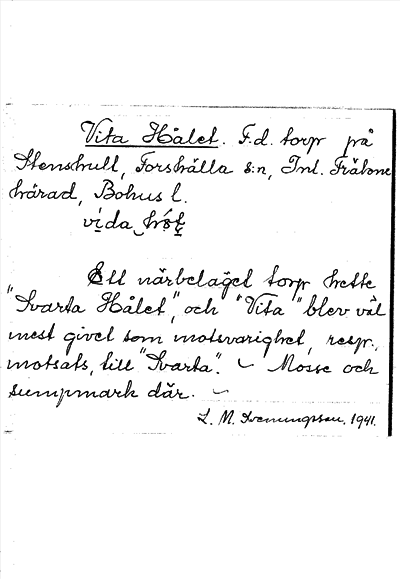 Vita Hålet. F.d. torp på
Stenshult, Forshälla s:n, Inl. Fräkne
härad, Bohus l.
vi̱da
Ett närbeläget torp hette
"Svarta Hålet", och "Vita" blev väl
mest givet som motsvarighet, resp.,
motsats, till "Svarta". ~ Mosse och
sumpmark där. ~
L. M. Svenungsson. 1941.